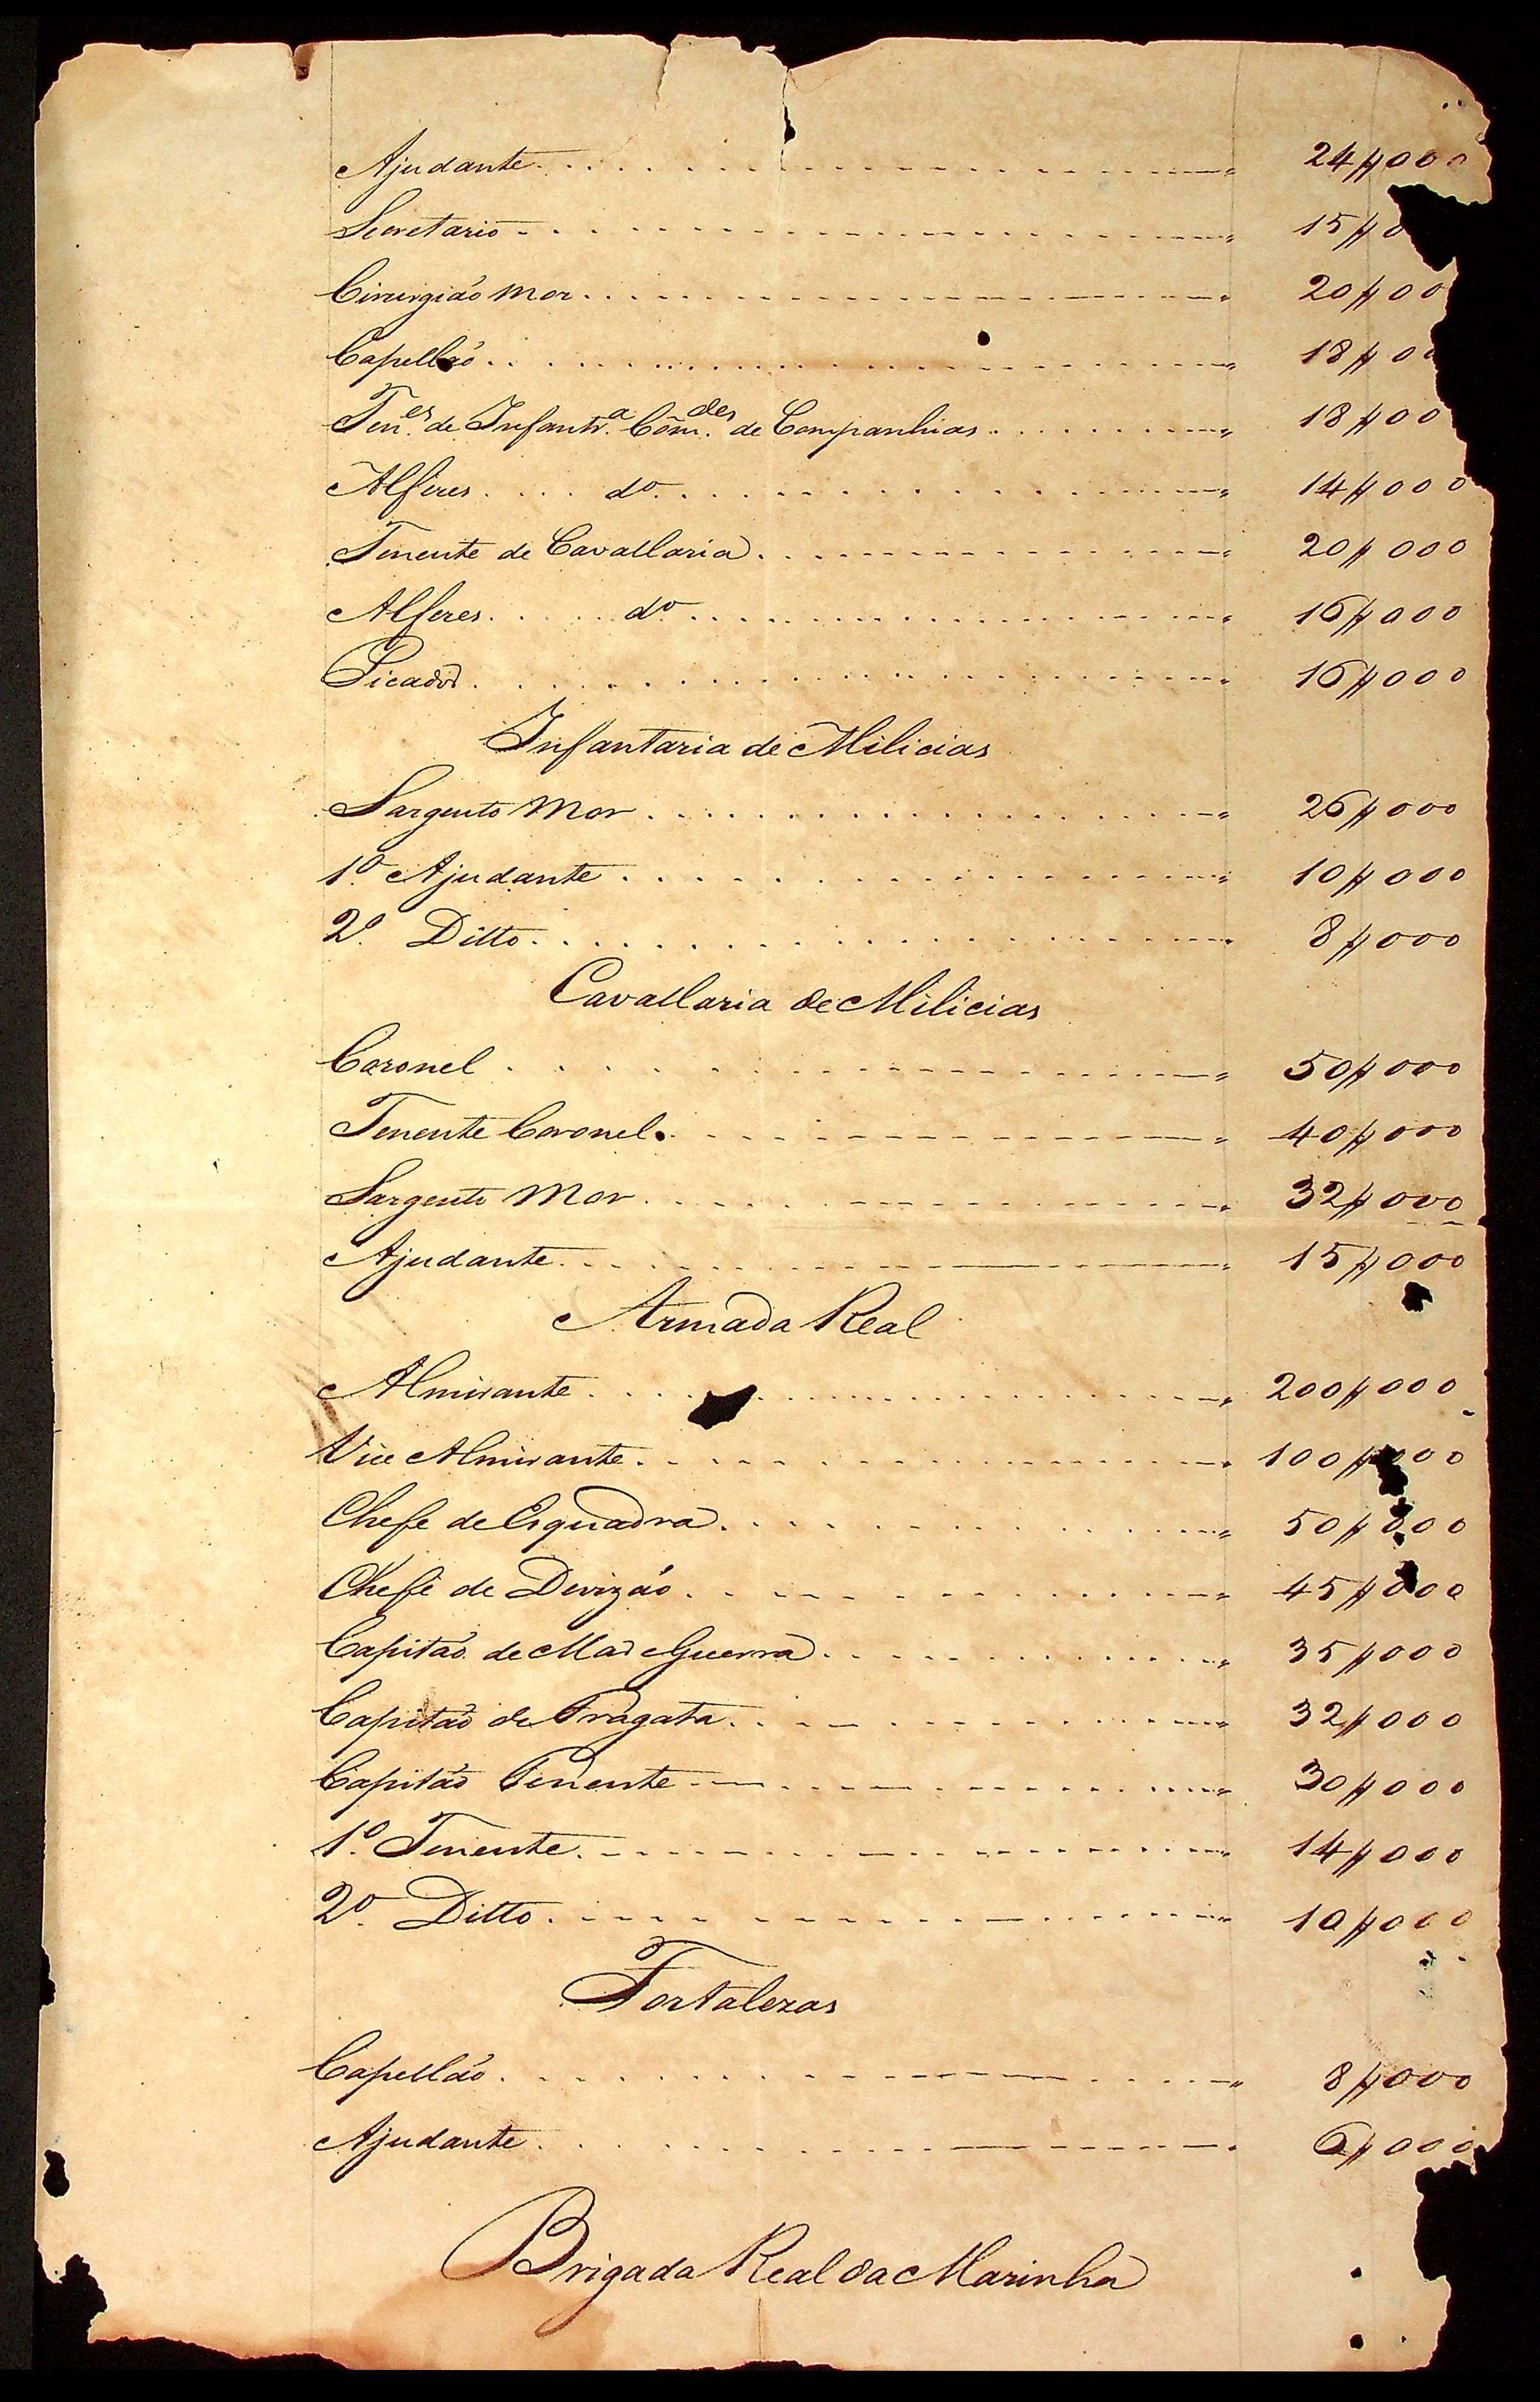 Ajudante 24$000
Secretario 15$0
Cirurgião Mor 20$00
Capellão 18$00
Ten.es de Infantr.a Com.des de Companhias 18$00
Alferes do 14$000
Tenente de Cavallaria 20$000
Alferes do 16$000
Picador 16$000
Infantaria de Milicias
Sargento Mor 26$000
1o Ajudante 10$000
2o Ditto 8$000
Cavallaria de Milicias
Coronel 50$000
Tenente Coronel 40$000
Sargento Mor 32$000
Ajudante 15$000
Armada Real
Almirante 200$000
Vice Almirante 100$000
Chefe de Esquadra 50$000
Chefe de Divizão 45$000
Capitão de Mar e Guerra 35$000
Capitão de Fragata 32$000
Capitão Tenente 30$000
1o Tenente 14$000
2o Ditto 10$000
Fortalezas
Capellão 8$000
Ajudante 6$000
Brigada Real da Marinha